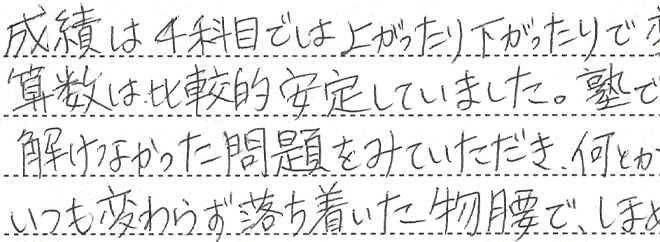 成績は4科目では上がったり下がったりで
算数は比較的安定していました。塾で
解けなかった問題をみていただき、何とか
いつも変わらず落ち着いた物腰で、ほめ